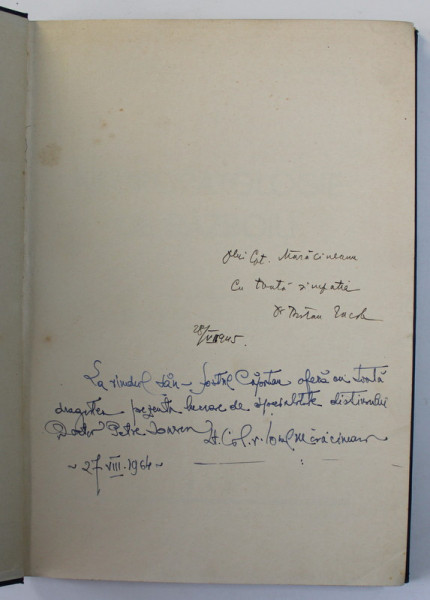 Cpt. Mărăcineanu
Cu toată simpatia
Dr
1945
La rândul său – fostul Căpitan oferă cu toată
dragostea prezenta lucrare de specialitate distinsului
Doctor Petre
Lt. Col. r. Mărăcineanu
~ 27.VIII.1964 ~